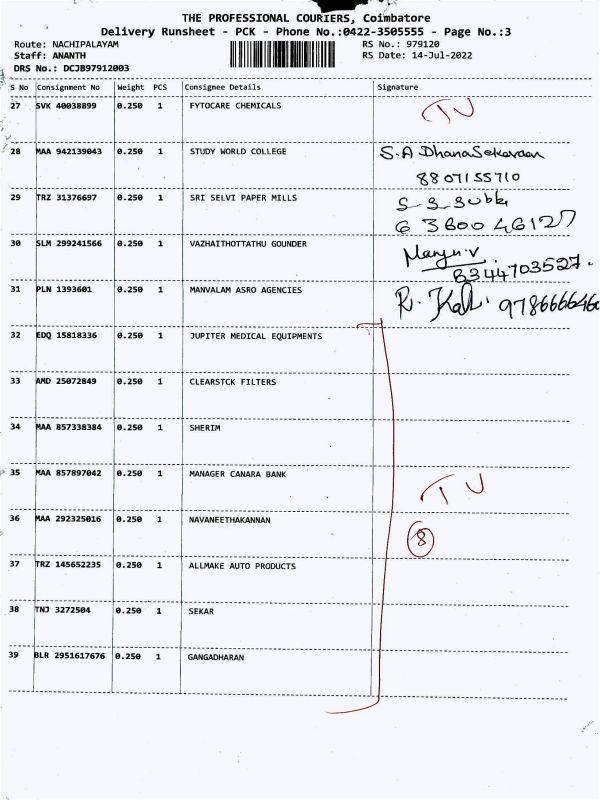 THE PROFESSIONAL COURIERS, Coimbatore
Delivery Runsheet - PCK - Phone No.:0422-3505555 - Page No.:3
Route: NACHIPALAYAM RS No.: 979120
Staff: ANANTH RS Date: 14-Jul-2022
DRS No.: DCJB97912003
S No Consignment No Weight PCS Consignee Details Signature
27 SVK 40038899 0.250 1 FYTOCARE CHEMICALS
28 MAA 942139043 0.250 1 STUDY WORLD COLLEGE S.A DhanaSekaran
8807155710
29 TRZ 31376697 0.250 1 SRI SELVI PAPER MILLS
6380046127
30 SLM 299241566 0.250 1 VAZHAITHOTTATHU GOUNDER
8344703527.
31 PLN 1393601 0.250 1 MANVALAM ASRO AGENCIES
32 EDQ 15818336 0.250 1 JUPITER MEDICAL EQUIPMENTS
33 AMD 25072849 0.250 1 CLEARSTCK FILTERS
34 MAA 857338384 0.250 1 SHERIM
35 MAA 857897042 0.250 1 MANAGER CANARA BANK
36 MAA 292325016 0.250 1 NAVANEETHAKANNAN
8
37 TRZ 145652235 0.250 1 ALLMAKE AUTO PRODUCTS
38 TNJ 3272504 0.250 1 SEKAR
39 BLR 2951617676 0.250 1 GANGADHARAN